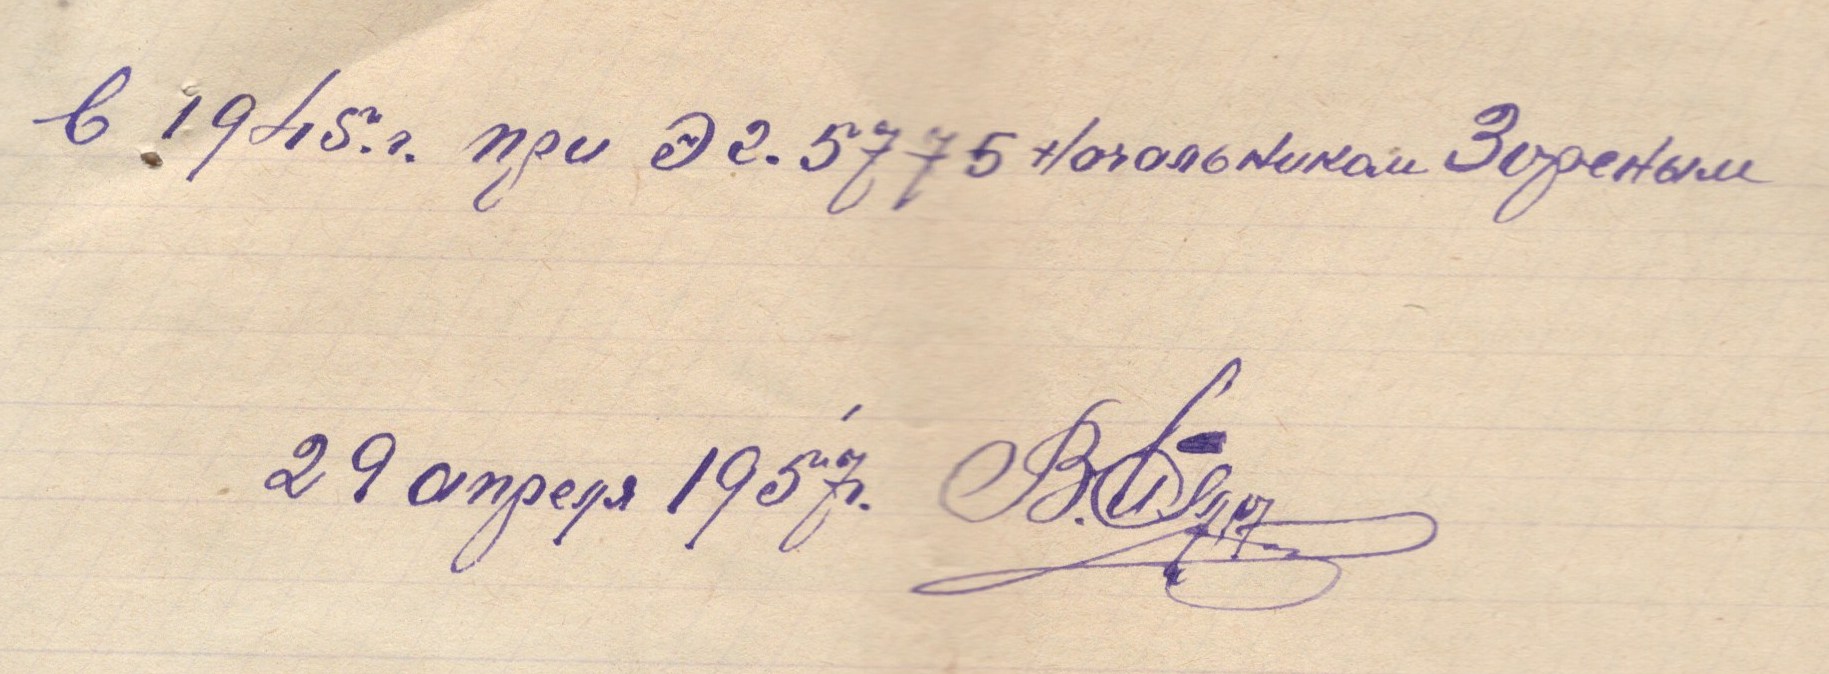 в 1945 г. при Э г. 5775 Начальником Зореным
29 апреля 1957 г.